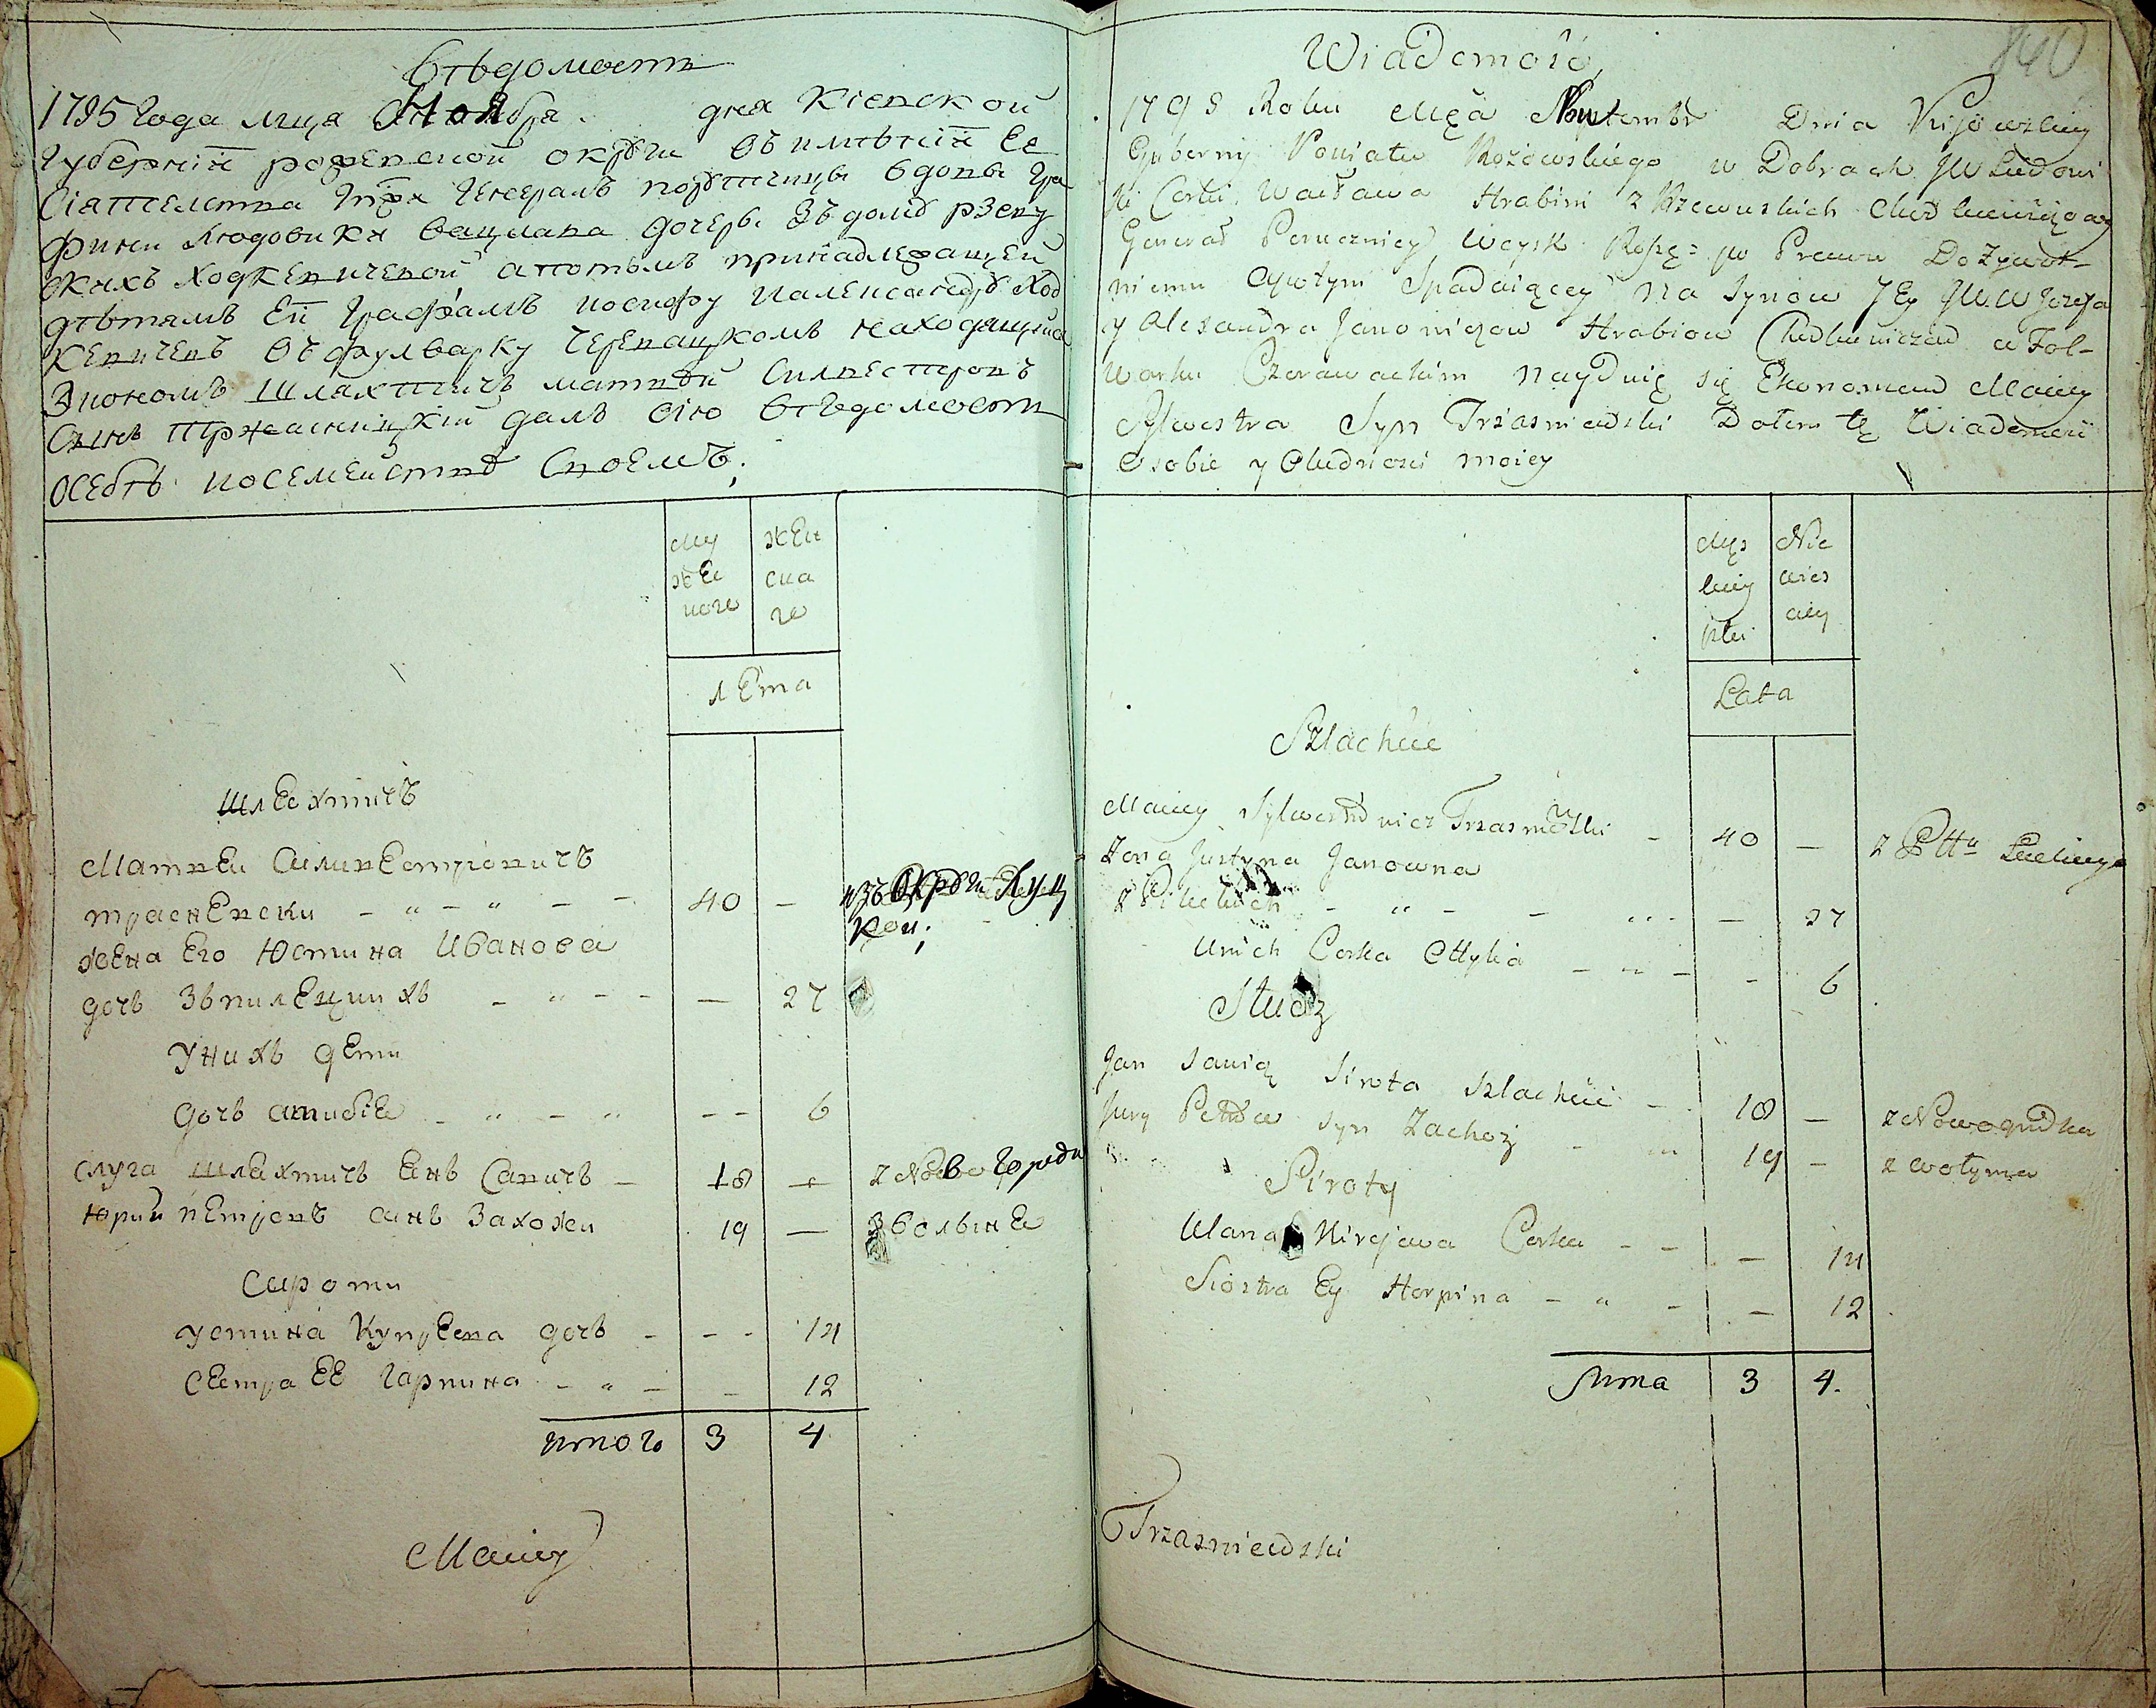 Вѣдомость
1795 Года мца Ноября дня Кіевской
Губерніи рожевской округи въ имѣніи Ее
Сіятелства Гпжи Генералъ порутчицы вдовы Гра
фини Людовики вацлава дочери зъ дому рзеву
скихъ Ходкевичевой апотомъ принадлежащей
дѣтямъ Еи Графамъ иосифу иалександру Ход
кевичевъ въ фулварку Черевацкомъ находящийся
Экономъ шляхтичъ матвѣй Силвестровъ
Сынъ тржасневский далъ сию вѣдомость
осебѣ иосемействѣ своемъ;
Му
же
ского
жен
ска
го
лета
шлехтичъ
Матвеи Силивестровичъ
трасневски - " - " - - 40 - изъ Округи Луц
кои;
жена Его Юстина Иванова
дочь зъпилецкихъ - " - - - 27
Унихъ дети
дочь - " - " - - 6
слуга шлехтичъ Янъ Савичъ - 18 - z Ново города
Юрий петровъ синъ Захожи 19 - зволыне
Сироти
устина Купреева дочь - - - 14
сестра ЕЕ Гарпина - " - - 12
итого 3 4
Maciey
840
Wiadomość
1795 Roku Mcą Nowembr Dnia Kijowskiey
Guberny Powiatu Rożowskiego w Dobrach JW Ludowi
ki Corki Wacława Hrabini z Rzewuskich Chodkiewiczowy
Generał Poruczniey Woysk Rossy: po Prawu Dożywot-
niemu apotym Spadaiącey na Synow Jey JWW Jozefa
y Alexandra Janowiczow Hrabiow Chodkiewiczow w Fol-
warku Czerewackim nayduię się Ekonomem Maciey
Sylwestra Syn Trzasniewski Dałem tę Wiadomość
o sobie y Ludnosci moiey
Męs
kiey
płci
Nie
wies
ciey
Lata
Szlachcic
Maciey Sylwestrowicz Trzasniewski - 40 - z Pttu Luckiego
Zona Justyna Janowna
z Pileckich - " - - " - - 27
Unich Corka - " - - 6
Słudzy
Jan Sawicz Sirota Szlachcic - 18 - z Nowogrudka
Jury Petrow syn Zachoży - 19 - z Wołynia
Siroty
Corka - - - 14
Siostra Ey Horpina - " - - 12
Suma 3 4.
Trzasniewski